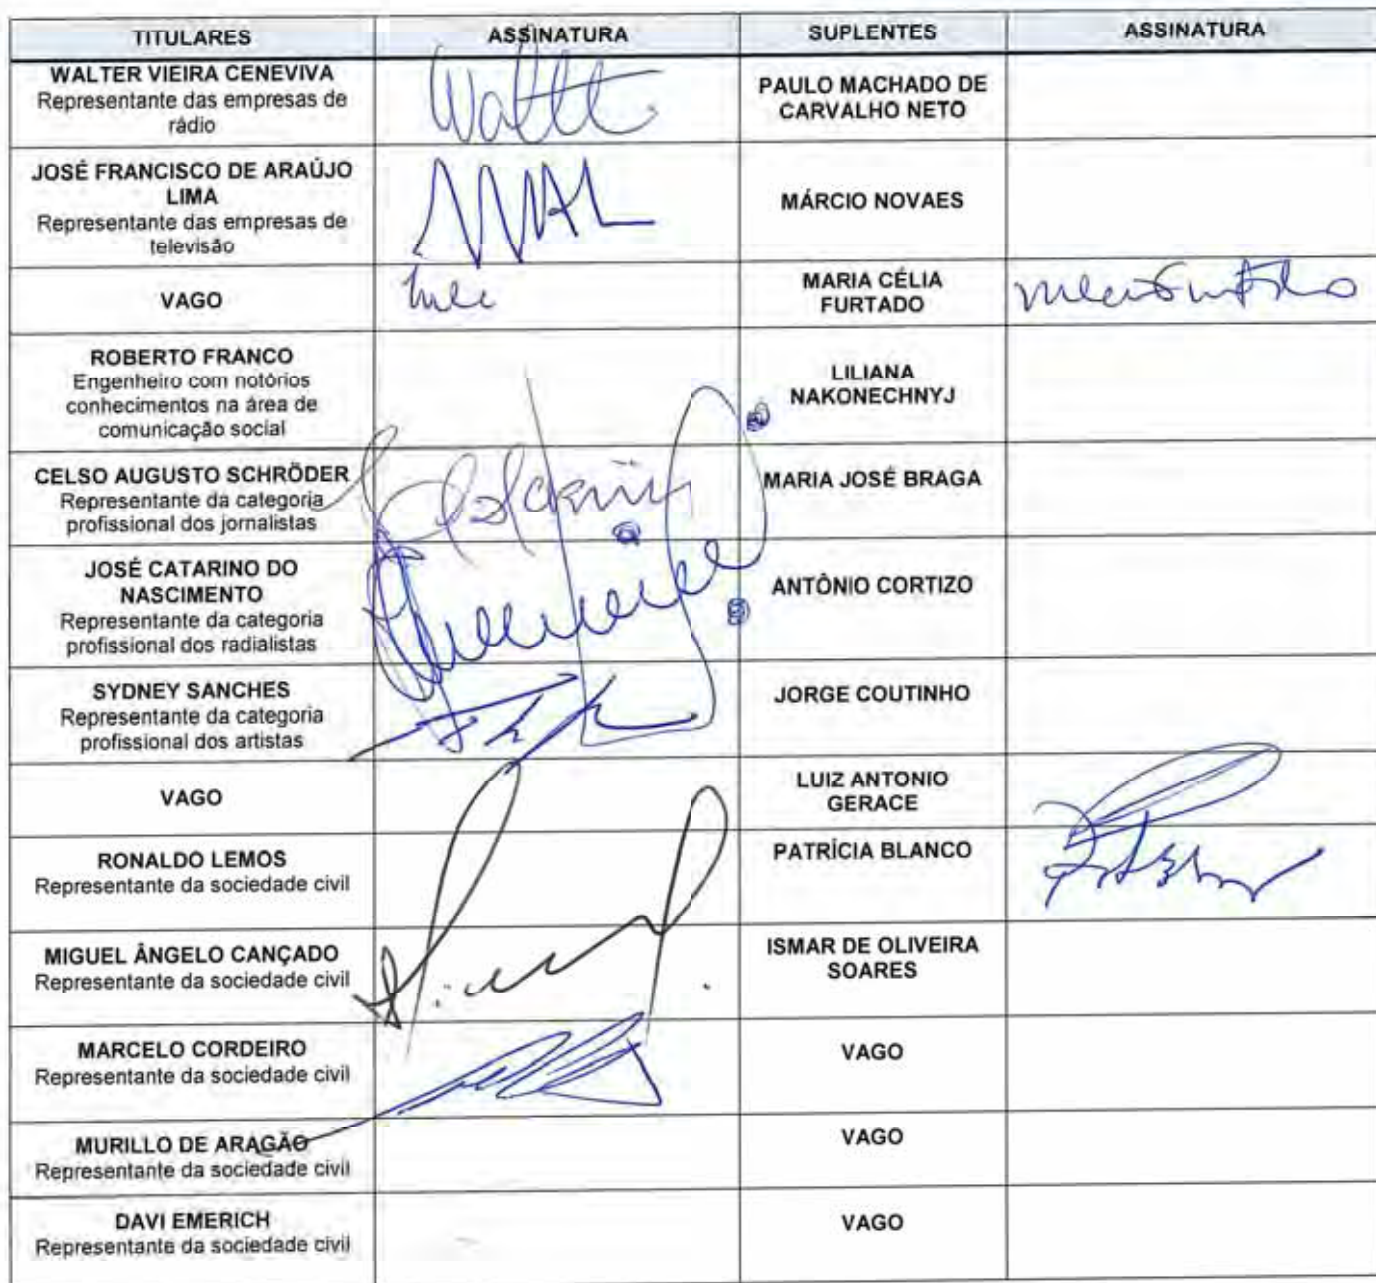 TITULARES ASSINATURA SUPLENTES ASSINATURA
WALTER VIEIRA CENEVIVA
Representante das empresas de
rádio
PAULO MACHADO DE
CARVALHO NETO
JOSÉ FRANCISCO DE ARAÚJO
LIMA
Representante das empresas de
televisão
MÁRCIO NOVAES
VAGO
MARIA CÉLIA
FURTADO
ROBERTO FRANCO
Engenheiro com notórios
conhecimentos na área de
comunicação social
LILIANA
NAKONECHNYJ
CELSO AUGUSTO SCHRÖDER
Representante da categoria
profissional dos jornalistas
MARIA JOSÉ BRAGA
JOSÉ CATARINO DO
NASCIMENTO
Representante da categoria
profissional dos radialistas
ANTÔNIO CORTIZO
SYDNEY SANCHES
Representante da categoria
profissional dos artistas
JORGE COUTINHO
VAGO
LUIZ ANTONIO
GERACE
RONALDO LEMOS
Representante da sociedade civil
PATRÍCIA BLANCO
MIGUEL ÂNGELO CANÇADO
Representante da sociedade civil
ISMAR DE OLIVEIRA
SOARES
MARCELO CORDEIRO
Representante da sociedade civil
VAGO
MURILLO DE ARAGÃO
Representante da sociedade civil
VAGO
DAVI EMERICH
Representante da sociedade civil
VAGO